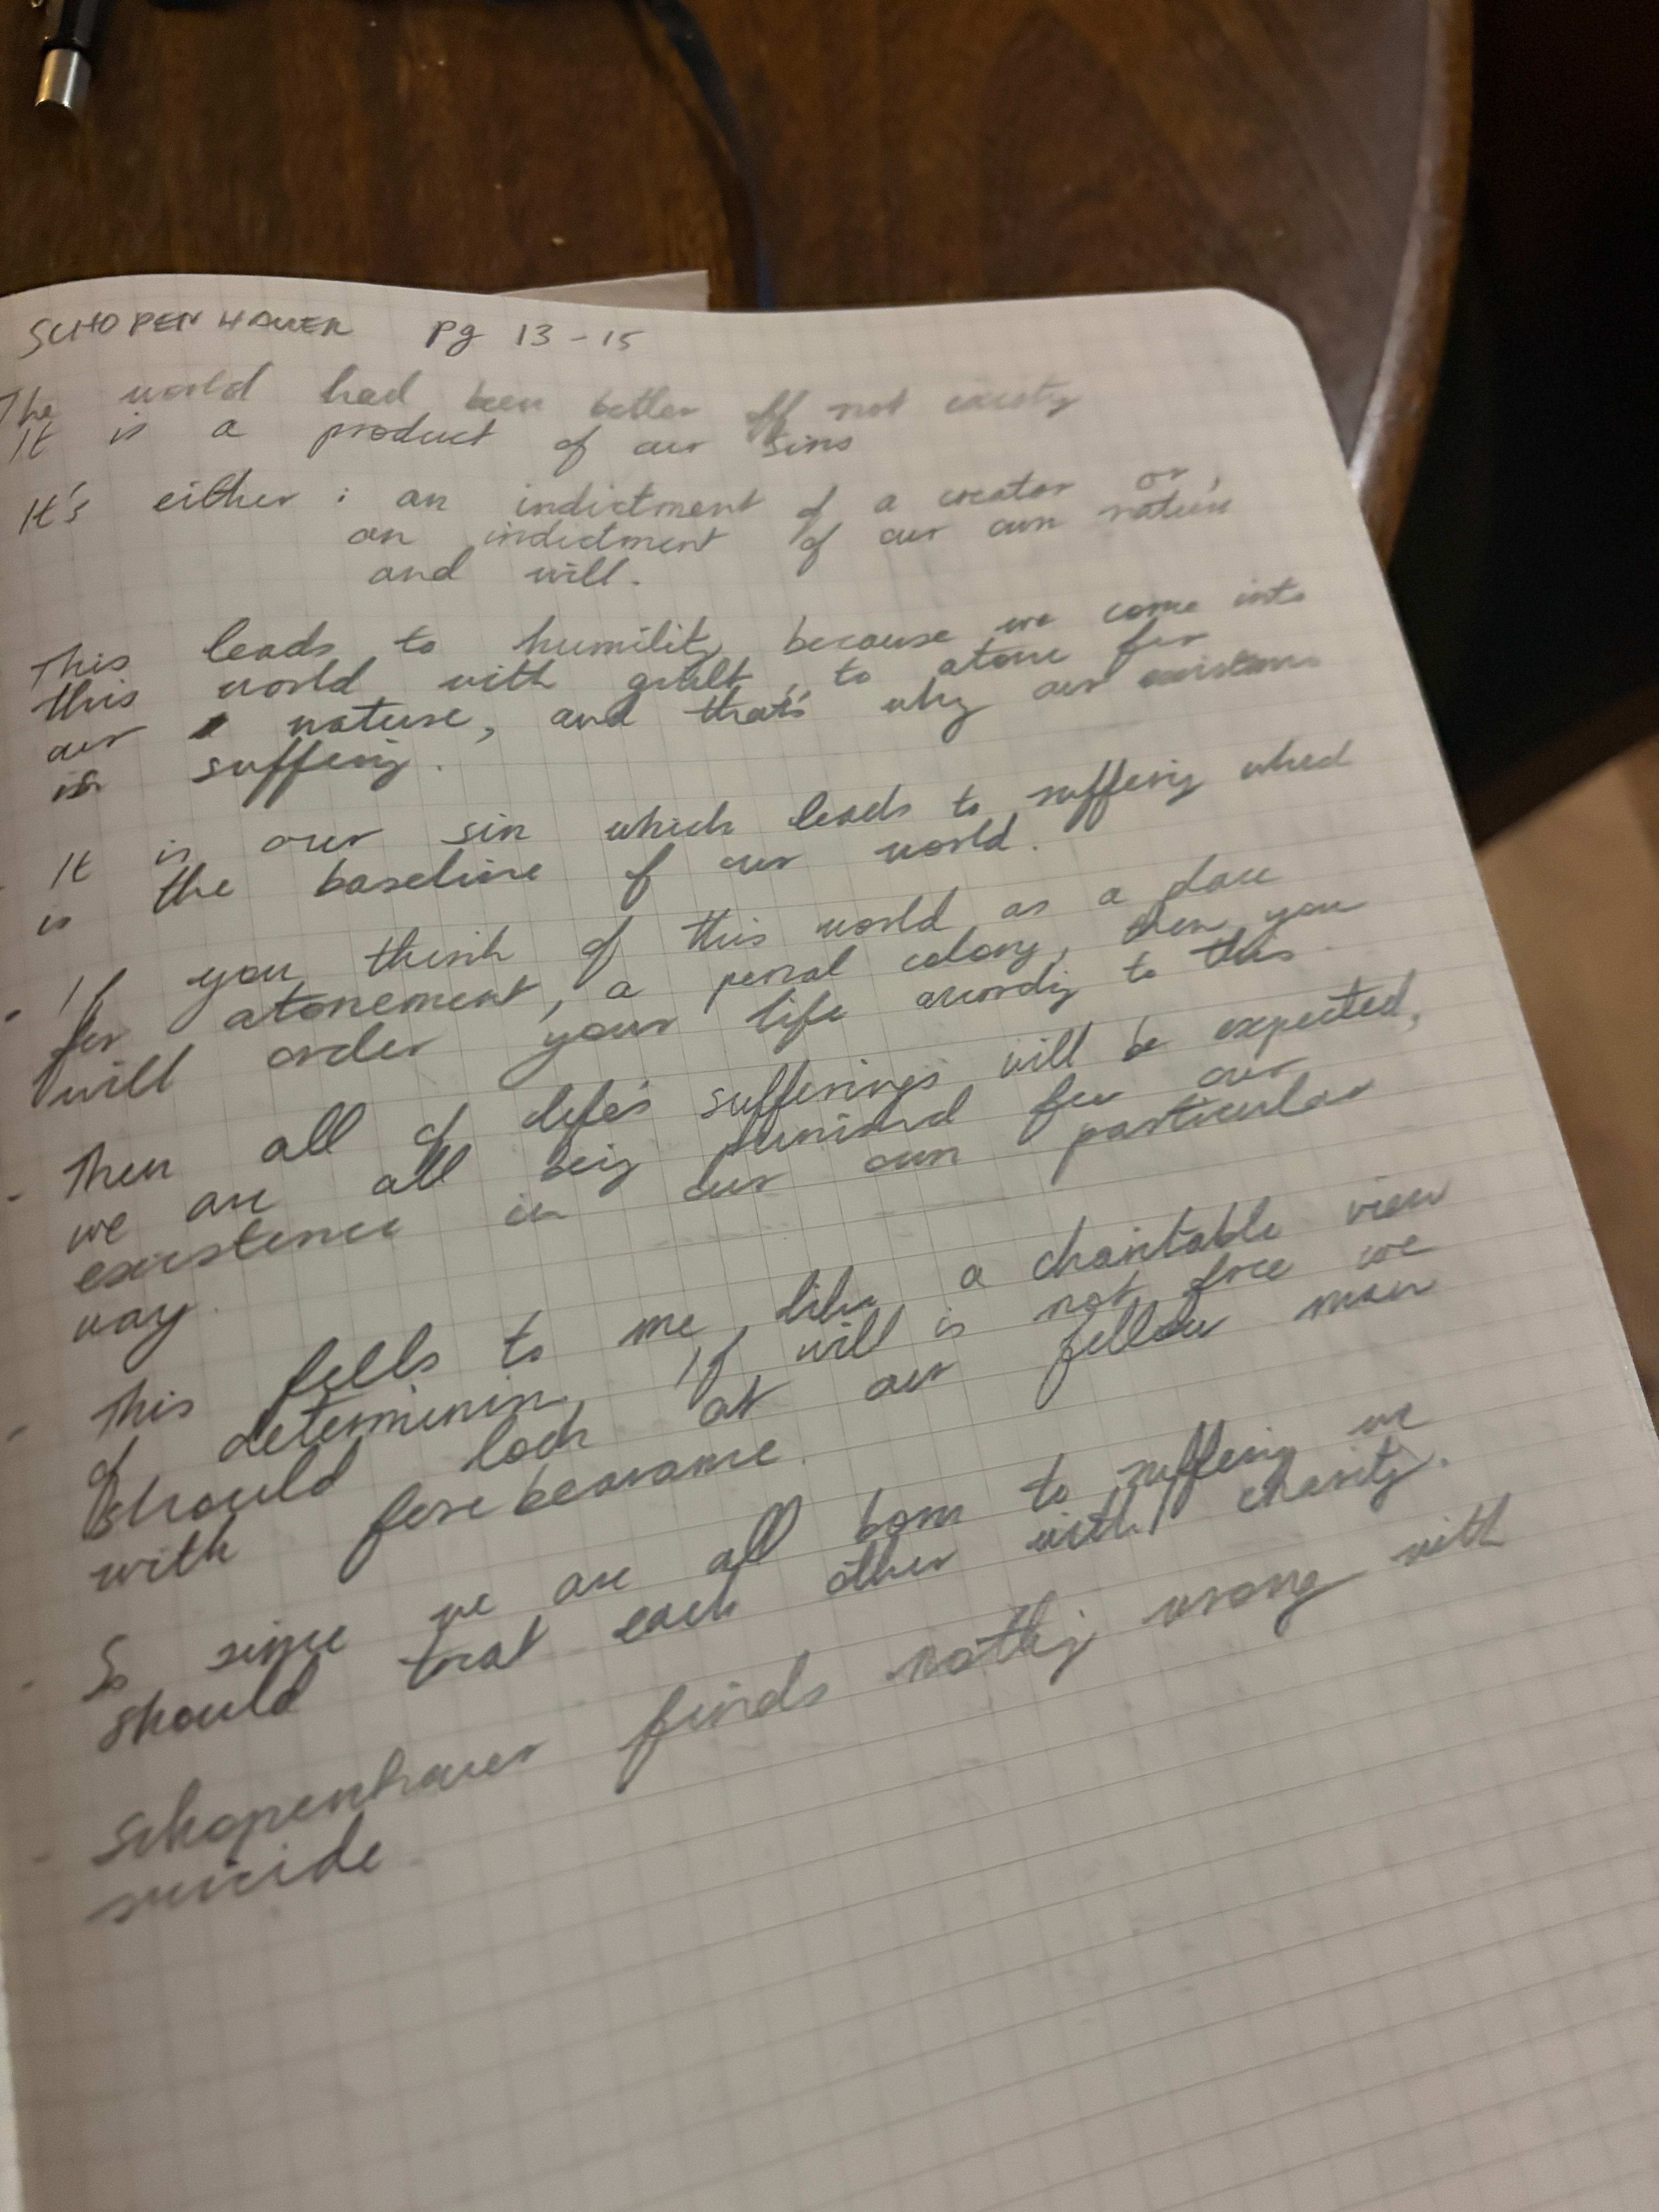 SCHOPENHAUER pg 13-15
The world had been better off not existing
It is a product of our sins
It's either: an indictment of a creator or,
an indictment of our own nature
and will.
This leads to humility because we come into
this world with guilt, to atone for
our nature, and that's why our existence
is suffering.
It is our sin which leads to suffering which
is the baseline of our world.
- If you think of this world as a place
for atonement, a penal colony, then you
will order your life according to this.
- Then all of life's sufferings will be expected,
we are all being punished for our
existence in our own particular
way.
- This feels to me, like a charitable view
of determinism, If will is not free we
should look at our fellow man
with forebearance.
- So since we are all born to suffering we
should treat each other with charity.
- Schopenhauer finds nothing wrong with
suicide.